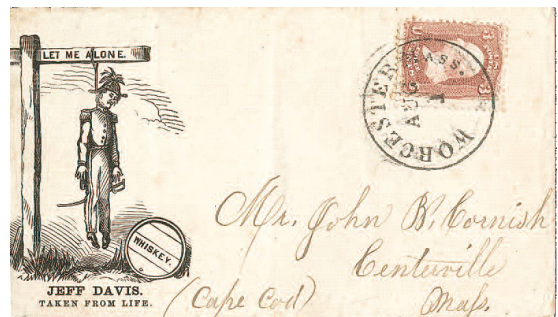 LET ME ALONE.
WHISKEY.
JEFF DAVIS.
TAKEN FROM LIFE.
WORCESTER MASS.
AUG
1
U
3
3
Mr. John B. Cornish
Centerville
(Cape Cod)
Mass.